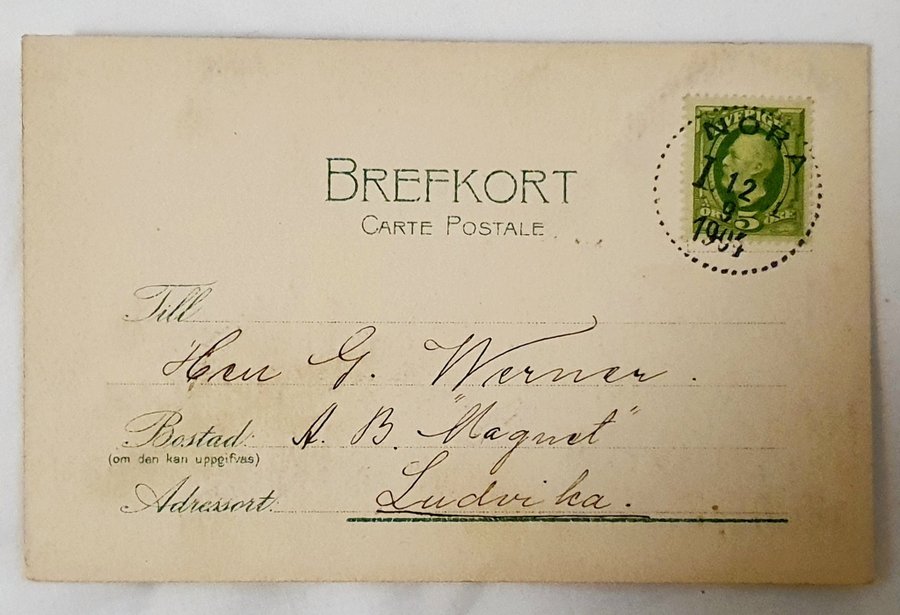 BREFKORT
CARTE POSTALE
SVERIGE
5
ÖRE
NORA
12
9
1904
Till
Herr G. Werner.
Bostad: A. B. "Magnet"
(om den kan uppgifvas)
Adressort: Ludvika.